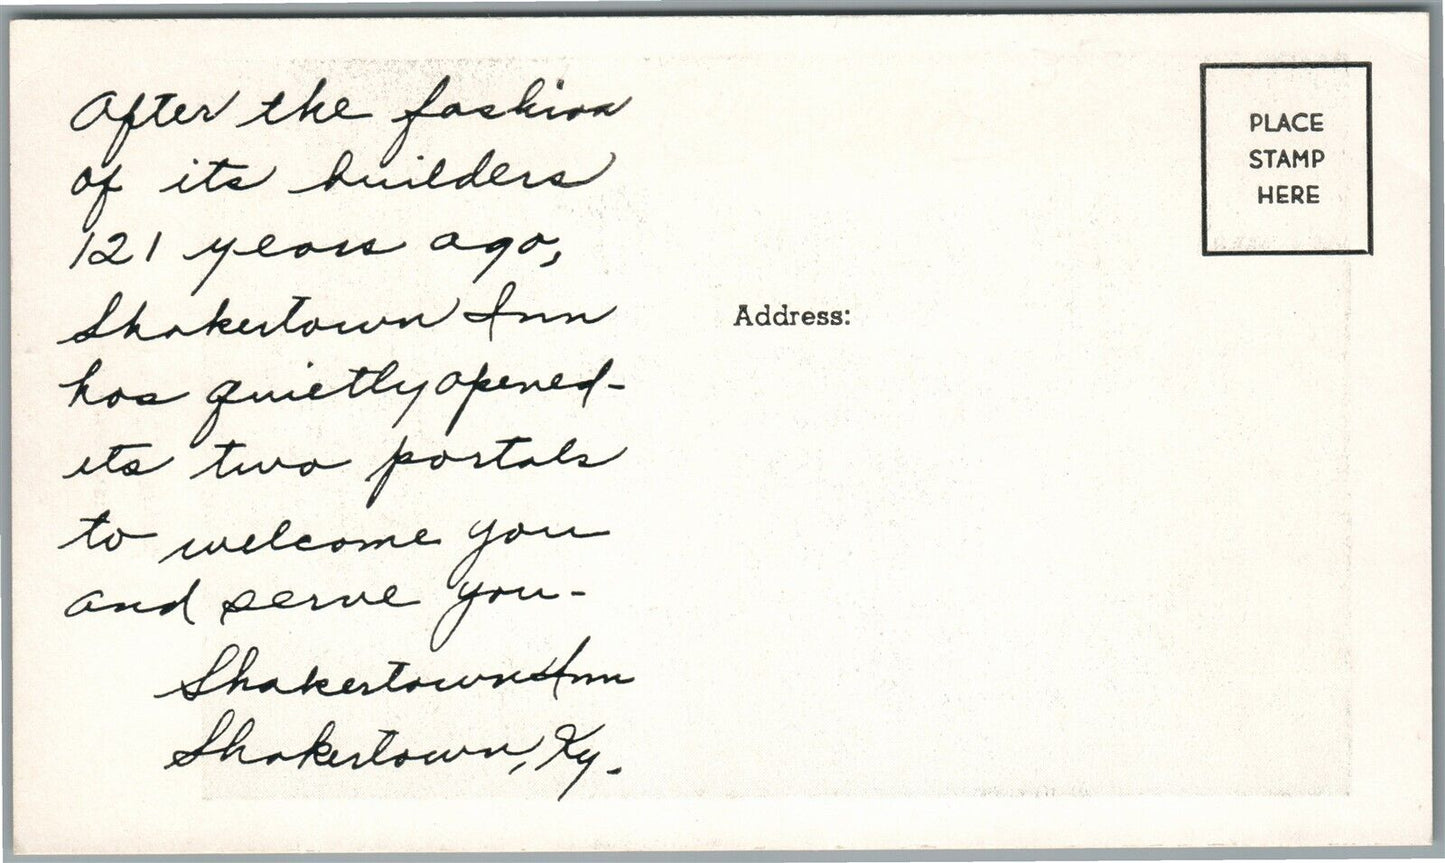 After the fashion
of its builders
121 years ago,
Shakertown Inn
has quietly opened-
its two portals
to welcome you
and serve you-
Shakertown Inn
Shakertown, Ky.
PLACE
STAMP
HERE
Address: